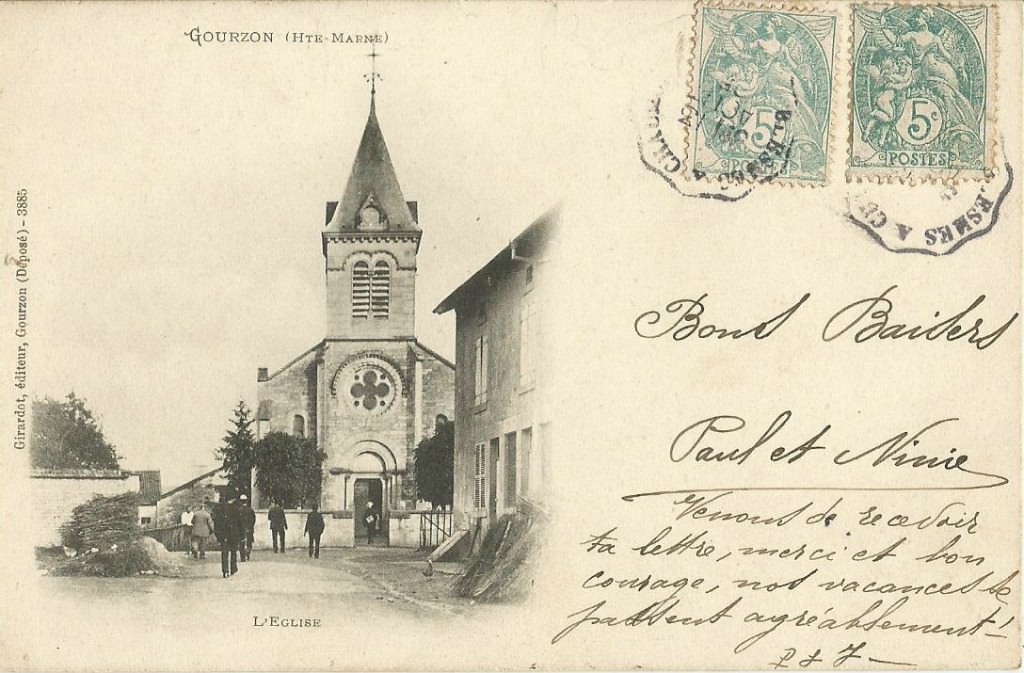 GOURZON (HTE-MARNE)
Girardot, éditeur, Gourzon (Déposé) - 3885
5c
POSTES
BLESMES A
ESMES A
Bons Baisers
Paul et Ninie
Venons de recevoir
ta lettre, merci et bon
courage, nos vacances se
passent agréablement!
L'EGLISE